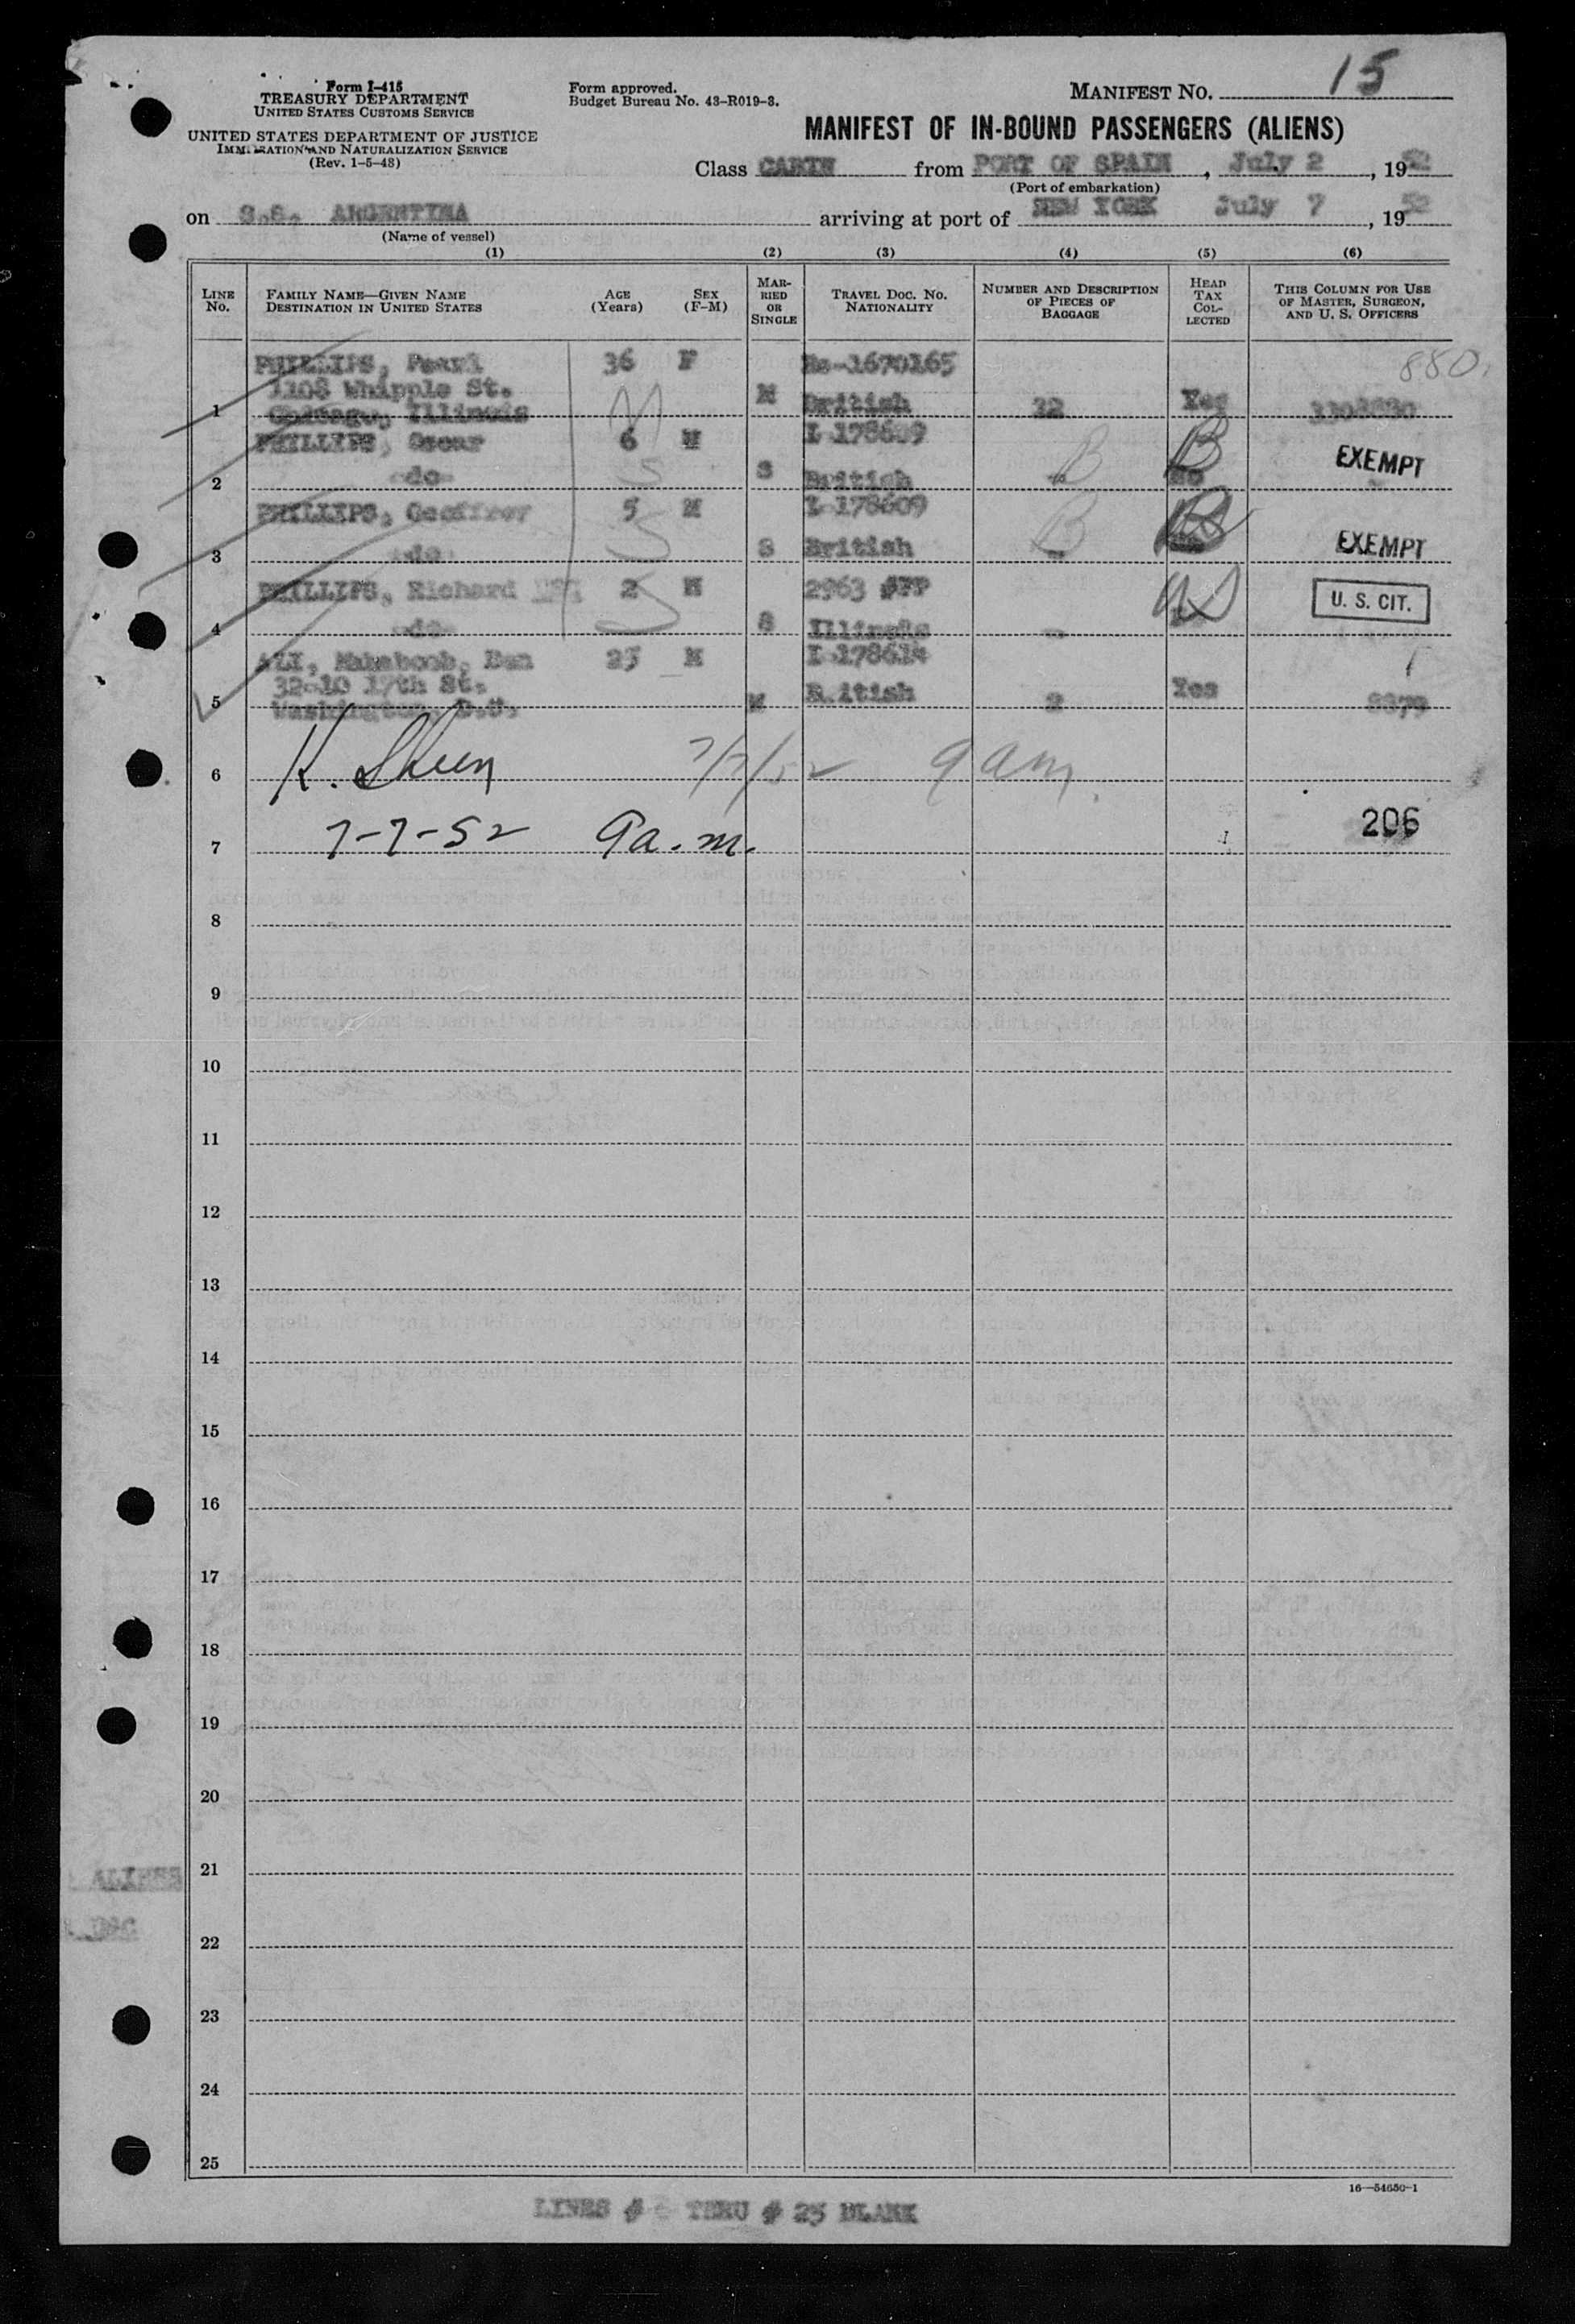 15
Form I-415
TREASURY DEPARTMENT
UNITED STATES CUSTOMS SERVICE
UNITED STATES DEPARTMENT OF JUSTICE
IMMIGRATION AND NATURALIZATION SERVICE
(Rev. 1-5-48)
Form approved.
Budget Bureau No. 43-R019-3.
MANIFEST NO.
MANIFEST OF IN-BOUND PASSENGERS (ALIENS)
Class CABIN from PORT OF SPAIN, July 2, 1952
(Port of embarkation)
on S.S. ARGENTINA arriving at port of NEW YORK July 7, 1952
(Name of vessel)
(1) (2) (3) (4) (5) (6)
LINE NO.
FAMILY NAME—GIVEN NAME
DESTINATION IN UNITED STATES
AGE (Years)
SEX (F-M)
MARRIED OR SINGLE
TRAVEL DOC. NO. NATIONALITY
NUMBER AND DESCRIPTION OF PIECES OF BAGGAGE
HEAD TAX COLLECTED
THIS COLUMN FOR USE OF MASTER, SURGEON, AND U. S. OFFICERS
880.
PHILLIPS, Pearl 36 F Re-1670165
1108 Whipple St.
1 Chicago, Illinois M British 32 Yes
PHILLIPS, Oscar 6 M I-178609
2 -do- S British B B EXEMPT
PHILLIPS, Geoffrey 5 M I-178609
3 -do- S British B EXEMPT
PHILLIPS, Richard 2 M 2963
4 -do- S Illinois US U. S. CIT.
ALI, Mahaboob, Ben 25 M I-178614
32-10 17th St.
5 Washington, D.C. M British 2 Yes 8879
6 K. Sheen 7/7/52 9 am
7 7-7-52 9 a.m. 206
8
9
10
11
12
13
14
15
16
17
18
19
20
21
ALIENS
22
23
24
25
16—54650-1
LINES # THRU # 25 BLANK